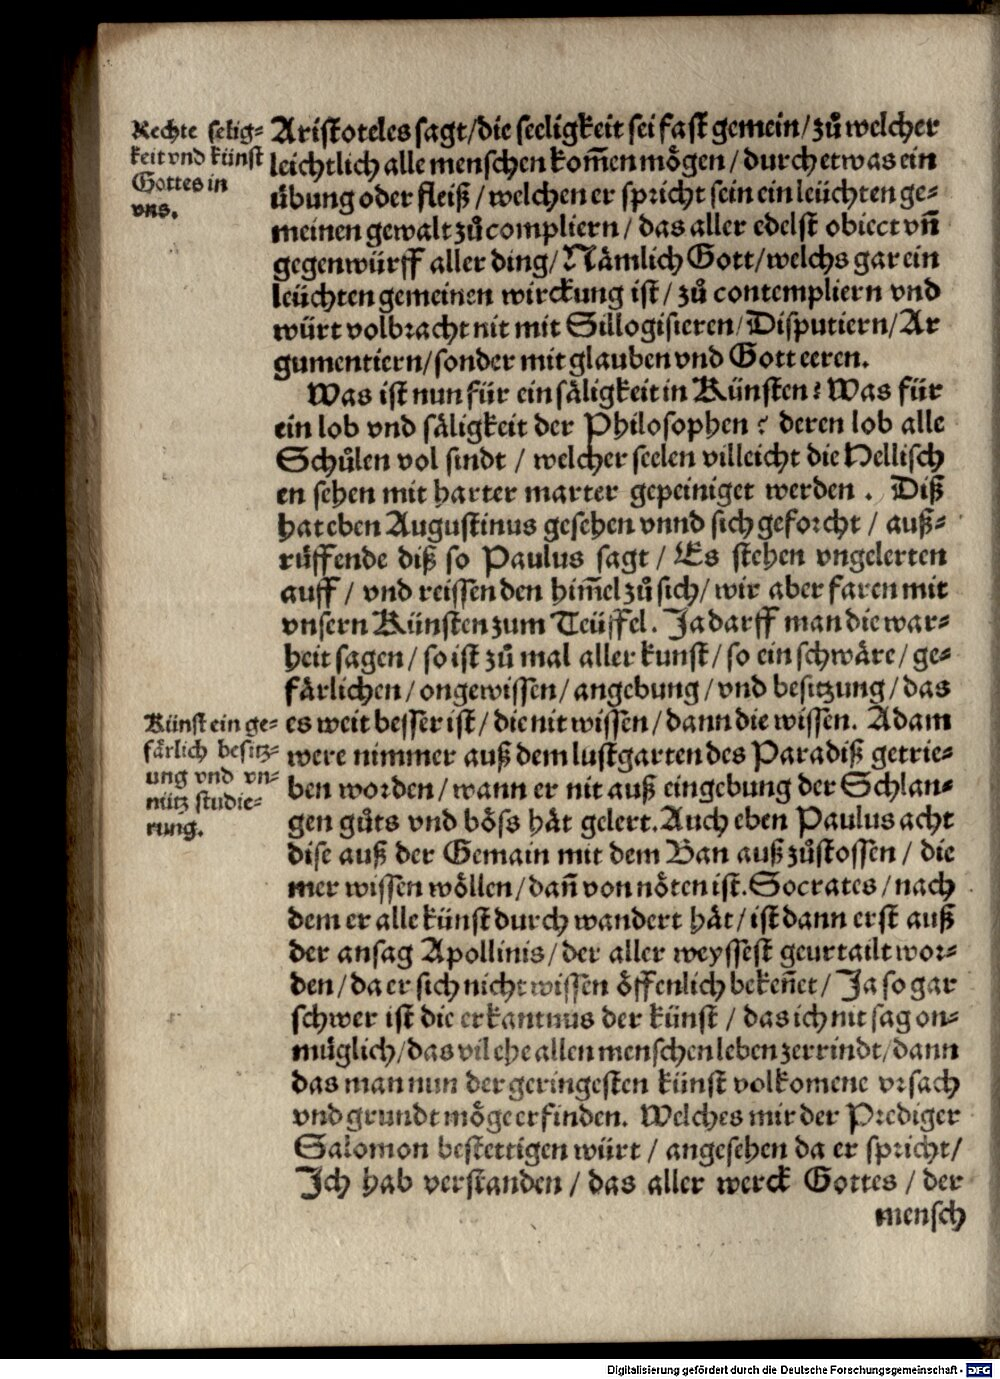 Rechte selig⸗
keit vnd künst
Gottes in
vns.
Aristoteles sagt/die seeligkeit sei fast gemein/zů welcher
leichtlich alle menschen kom̃en mögen/durch etwas ein
übung oder fleiß/welchen er spricht sein ein leüchten ge⸗
meinen gewalt zů compliern/das aller edelst obiect vñ
gegenwürff aller ding/Nämlich Gott/welchs gar ein
leüchten gemeinen wirckung ist/zů contempliern vnd
würt volbracht nit mit Sillogisieren/Disputiern/Ar
gumentiern/sonder mit glauben vnd Gott eeren.
Was ist nun für ein säligkeit in Künsten? Was für
ein lob vnd säligkeit der Philosophen? deren lob alle
Schůlen vol sindt/welcher seelen villeicht die Hellisch
en sehen mit harter marter gepeiniget werden. Diß
hat eben Augustinus gesehen vnnd sich geforcht/auß⸗
rüffende diß so Paulus sagt/Es stehen vngelerten
auff/vnd reissen den him̃el zů sich/wir aber faren mit
vnsern Künsten zum Teüffel. Ja darff man die war⸗
heit sagen/so ist zů mal aller kunst/so ein schwäre/ge⸗
färlichen/ongewissen/angebung/vnd besitzung/das
Künst ein ge⸗
färlich besitz⸗
ung vnd vn⸗
nütz studie⸗
rung.
es weit besser ist/die nit wissen/dann die wissen. Adam
were nimmer auß dem lustgarten des Paradiß getrie⸗
ben worden/wann er nit auß eingebung der Schlan⸗
gen gůts vnd böss hät gelert. Auch eben Paulus acht
dise auß der Gemain mit dem Ban auß zůstossen/die
mer wissen wöllen/dañ von nöten ist. Socrates/nach
dem er alle künst durch wandert hät/ist dann erst auß
der ansag Apollinis/der aller weyssest geurtailt wor⸗
den/da er sich nicht wissen öffenlich bekeñet/Ja so gar
schwer ist die erkantnus der künst/das ich nit sag on⸗
müglich/das vil ehe allen menschen leben zerrindt/dann
das man nun der geringesten künst volkomene vrsach
vnd grundt möge erfinden. Welches mir der Prediger
Salomon bestettigen würt/angesehen da er spricht/
Ich hab verstanden/das aller werck Gottes/der
mensch
Digitalisierung gefördert durch die Deutsche Forschungsgemeinschaft - DFG